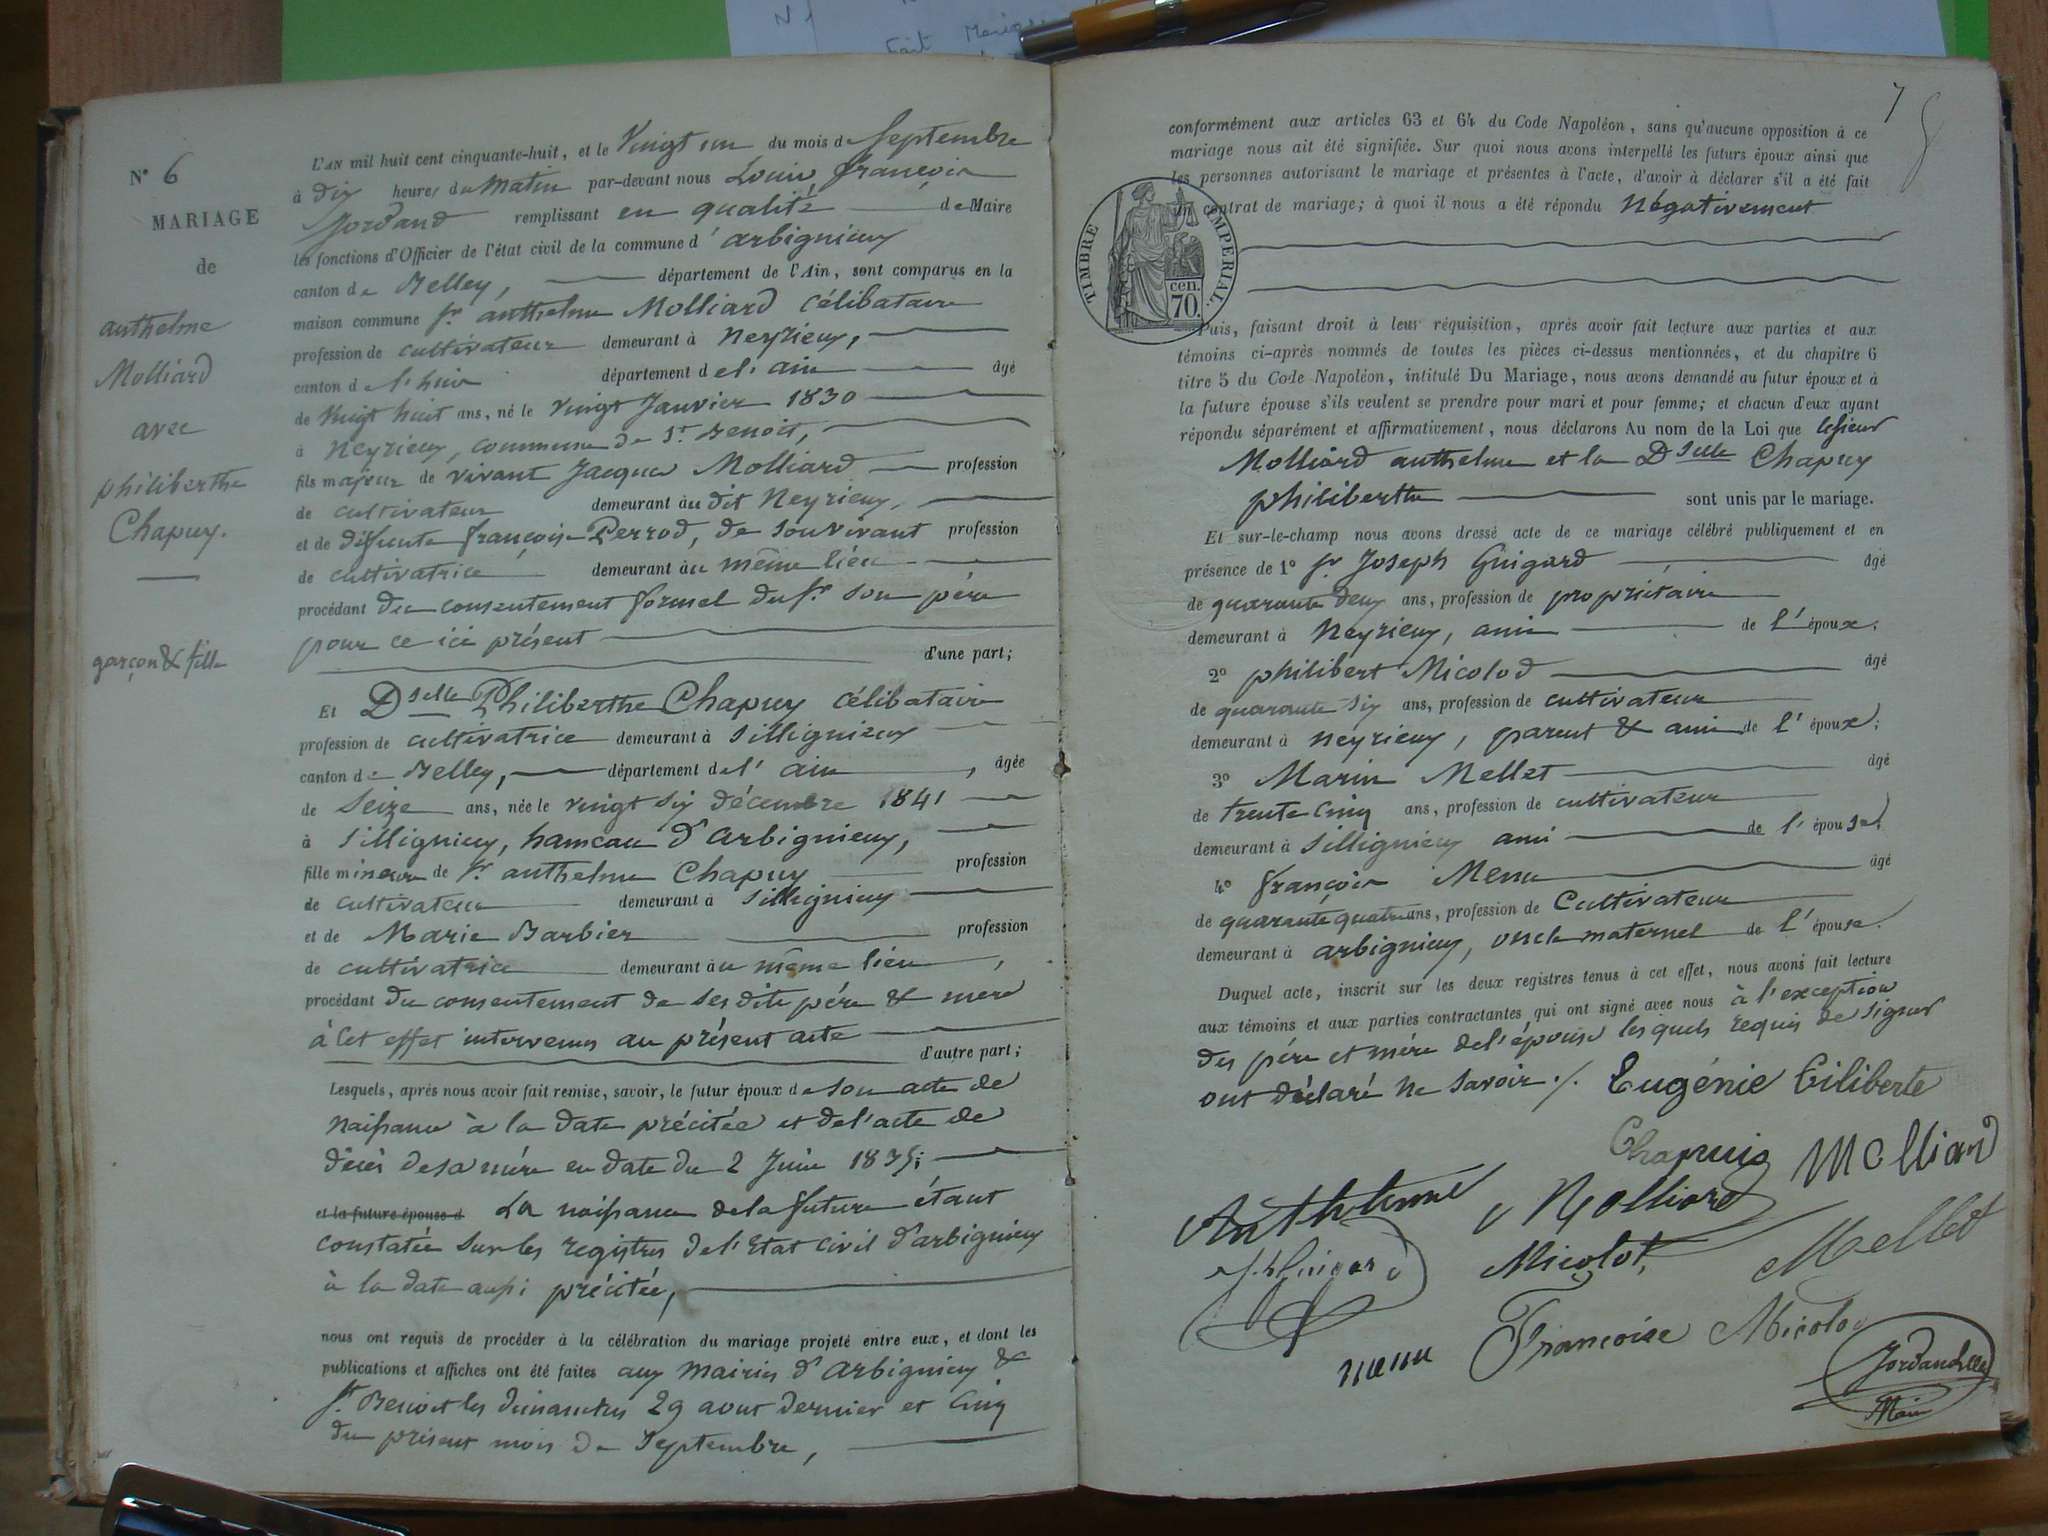 N° 6
MARIAGE
de
anthelme
Molliard
avec
philiberthe
Chapuy.
garçon & fille
L'AN mil huit cent cinquante-huit, et le Vingt un du mois de Septembre
à dix heures du Matin par-devant nous Louis françois
Jordand remplissant en qualité de Maire
les fonctions d'Officier de l'état civil de la commune d'arbignieux
canton de Belley, département de l'Ain, sont comparus en la
maison commune Sr. anthelme Molliard Célibataire
profession de cultivateur demeurant à Neyrieux,
canton de l'huis département de l'ain âgé
de Vingt huit ans, né le vingt Janvier 1830
à Neyrieux, commune de St. Benoit,
fils majeur de vivant Jacques Molliard profession
de cultivateur demeurant au dit Neyrieux,
et de défunte françoise Perrod, de son vivant profession
de cultivatrice demeurant au même lieu
procédant du consentement formel du Sr. son père
pour ce ici présent
d'une part;
Et Dselle Philiberthe Chapuy célibataire
profession de cultivatrice demeurant à Sillignieux
canton de Belley, département de l'ain, âgée
de Seize ans, née le vingt six décembre 1841
à Sillignieux, hameau d'arbignieux,
fille mineure de Sr. anthelme Chapuy profession
de cultivateur demeurant à Sillignieux
et de Marie Barbier profession
de cultivatrice demeurant au même lieu,
procédant du consentement de ses dits père & mère
à cet effet intervenus au présent acte
d'autre part;
Lesquels, après nous avoir fait remise, savoir, le futur époux de son acte de
naissance à la date précitée et de l'acte de
décès de sa mère en date du 2 Juin 1835;
et la future épouse d La naissance de la future étant
constatée sur les registres de l'Etat civil d'arbignieux
à la date aussi précitée,
nous ont requis de procéder à la célébration du mariage projeté entre eux, et dont les
publications et affiches ont été faites aux mairies d'arbignieux &
St. Benoit les dimanches 29 aout dernier et Cinq
du présent mois de Septembre,
7
conformément aux articles 63 et 64 du Code Napoléon, sans qu'aucune opposition à ce
mariage nous ait été signifiée. Sur quoi nous avons interpellé les futurs époux ainsi que
les personnes autorisant le mariage et présentes à l'acte, d'avoir à déclarer s'il a été fait
un contrat de mariage; à quoi il nous a été répondu Négativement
TIMBRE IMPERIAL.
cen.
70.
Puis, faisant droit à leur réquisition, après avoir fait lecture aux parties et aux
témoins ci-après nommés de toutes les pièces ci-dessus mentionnées, et du chapitre 6
titre 5 du Code Napoléon, intitulé Du Mariage, nous avons demandé au futur époux et à
la future épouse s'ils veulent se prendre pour mari et pour femme; et chacun d'eux ayant
répondu séparément et affirmativement, nous déclarons Au nom de la Loi que le sieur
Molliard anthelme et la Dselle Chapuy
philiberthe sont unis par le mariage.
Et sur-le-champ nous avons dressé acte de ce mariage célébré publiquement et en
présence de 1° Sr Joseph Guigard âgé
de quarante deux ans, profession de propriétaire
demeurant à Neyrieux, ami de l'époux;
2° philibert Micolod âgé
de quarante six ans, profession de cultivateur
demeurant à neyrieux, parent & ami de l'époux;
3° Marin Mellet âgé
de trente cinq ans, profession de cultivateur
demeurant à Sillignieux ami de l'épouse;
4° françois Menu âgé
de quarante quatre ans, profession de Cultivateur
demeurant à arbignieux, oncle maternel de l'épouse.
Duquel acte, inscrit sur les deux registres tenus à cet effet, nous avons fait lecture
aux témoins et aux parties contractantes qui ont signé avec nous à l'exception
des père et mère de l'épouse lesquels requis de signer
ont déclaré ne savoir ./. Eugénie Ciliberte
Chapuis Molliard
Anthelme Molliard
Micolot Mellet
menu Francoise Micolod
Jordand
Maire